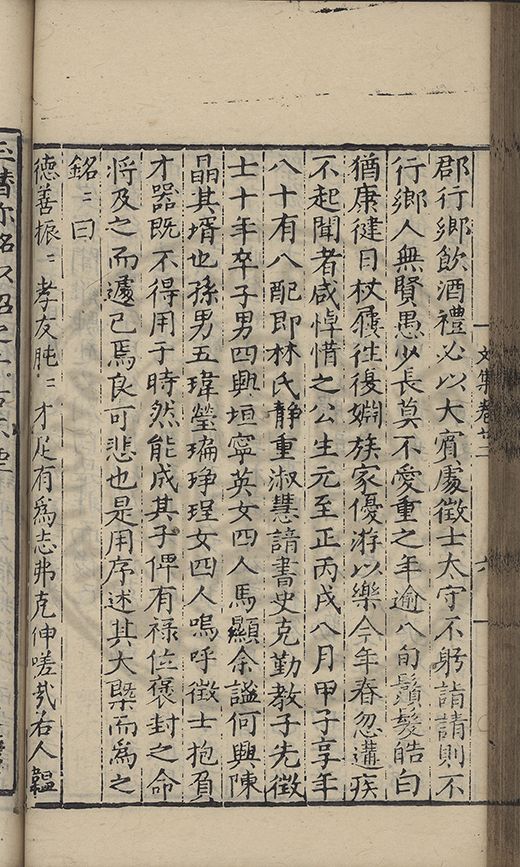 郡行鄉飲酒禮必以大賓處徵士大守不躬詣請則不
行鄉人無賢愚少長莫不愛重之年逾八旬鬚髮皓白
猶康健日杖屨往復婣族家優游以樂今年春忽遘疾
不起聞者咸悼惜之公生元至正丙戌八月甲子享年
八十有八配即林氏靜重淑慧請書史克勤教子先徵
士十年卒子男四興垣寧英女四人馬顯余謐何興陳
晶其壻也孫男五瑋瑩琱琤珵女四人嗚呼徵士抱負
才器既不得用于時然能成其子俾有祿位褒封之命
將及之而遽已焉良可悲也是用序述其大槩而為之
銘〻曰
德善振〻孝友肫〻才足有為志弗克伸嗟哉右人韞
文集卷廿二
六